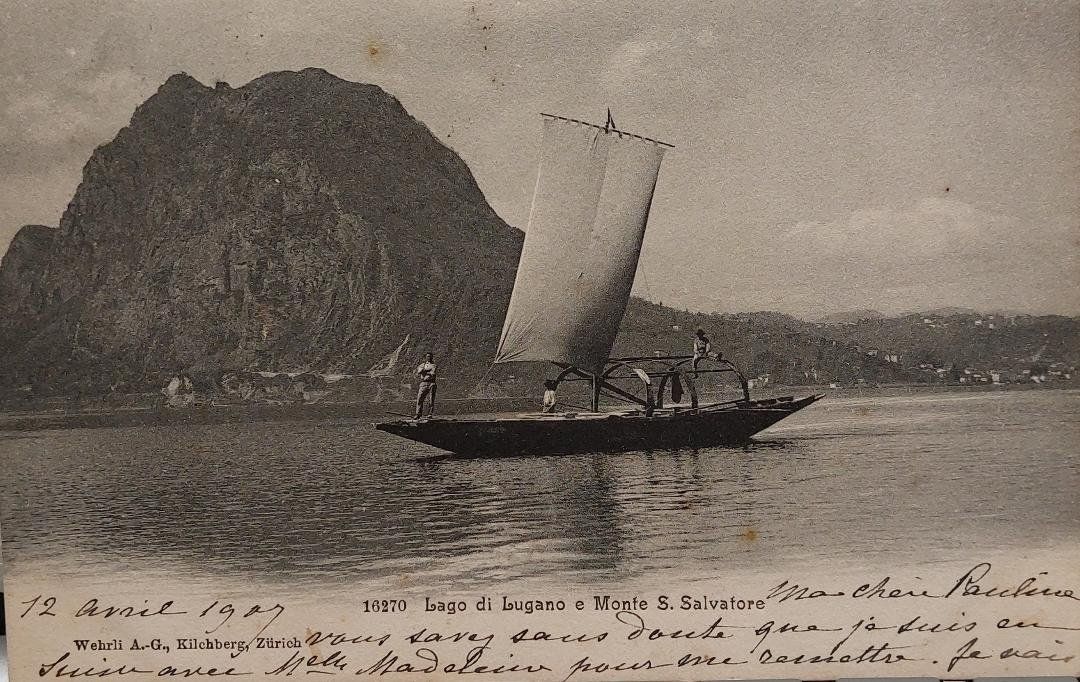 12 avril 1907
16270 Lago di Lugano e Monte S. Salvatore
Ma chère Pauline
Wehrli A.-G., Kilchberg, Zürich
vous savez sans doute que je suis en
Suisse avec Melle Madeleine pour me remettre. Je vais